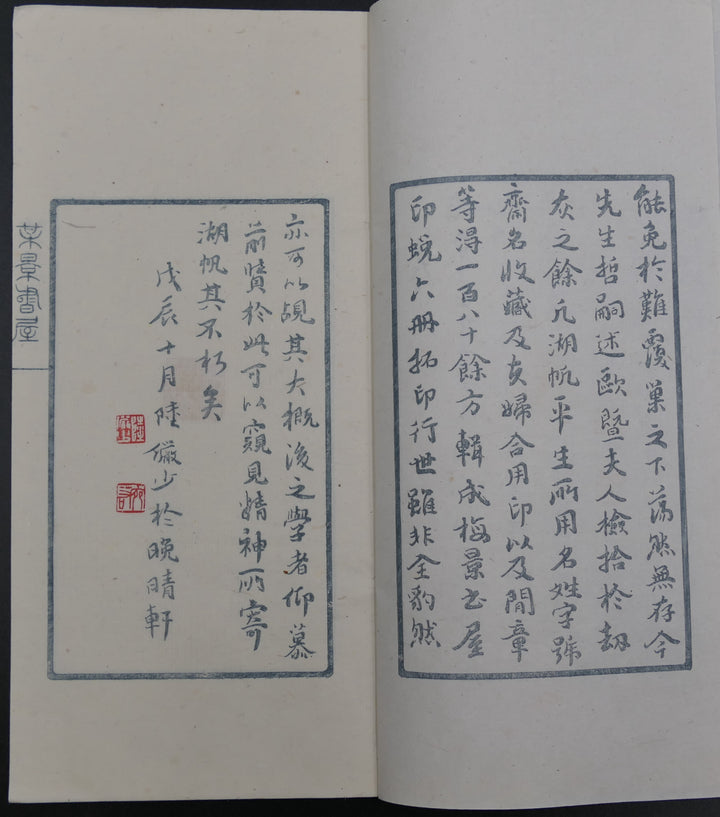 能免於難覆巢之下蕩然無存今
先生哲嗣述歐暨夫人檢拾於劫
灰之餘凡湖帆平生所用名姓字號
齋名收藏及夫婦合用印以及閒章
等得一百八十餘方輯成梅景書屋
印蛻六冊拓印行世雖非全豹然
亦可以覘其大概後之學者仰慕
前賢於此可以窺見精神所寄
湖帆其不朽矣
戊辰十月陸儼少於晚晴軒
某景書屋